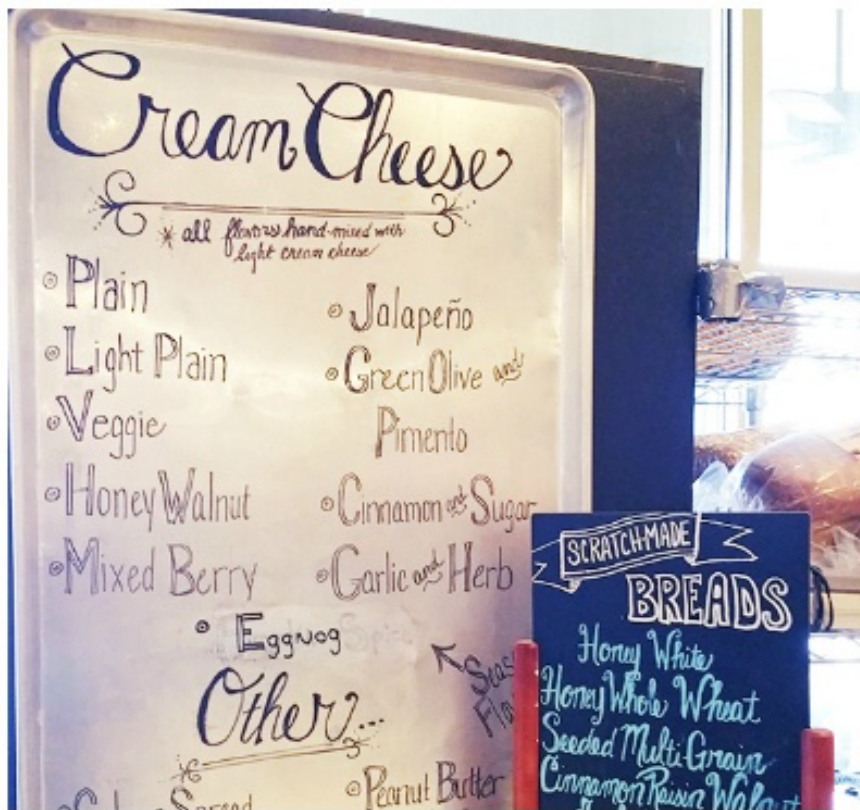 Cream Cheese
* all flavors hand-mixed with
light cream cheese
Plain
Light Plain
Veggie
Honey Walnut
Mixed Berry
Jalapeño
Green Olive and
Pimento
Cinnamon and Sugar
Garlic and Herb
Eggnog
Other...
Spread
Peanut Butter
SCRATCH-MADE
BREADS
Honey White
Honey Whole Wheat
Seeded Multi-Grain
Cinnamon Raisin